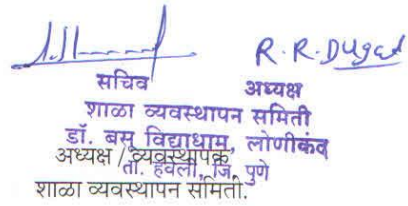 R. R. Dugad
सचिव अध्यक्ष
शाळा व्यवस्थापन समिती
डॉ. बसू विद्याधाम, लोणीकंद
अध्यक्ष / व्यवस्थापक
ता. हवेली, जि. पुणे
शाळा व्यवस्थापन समिती.